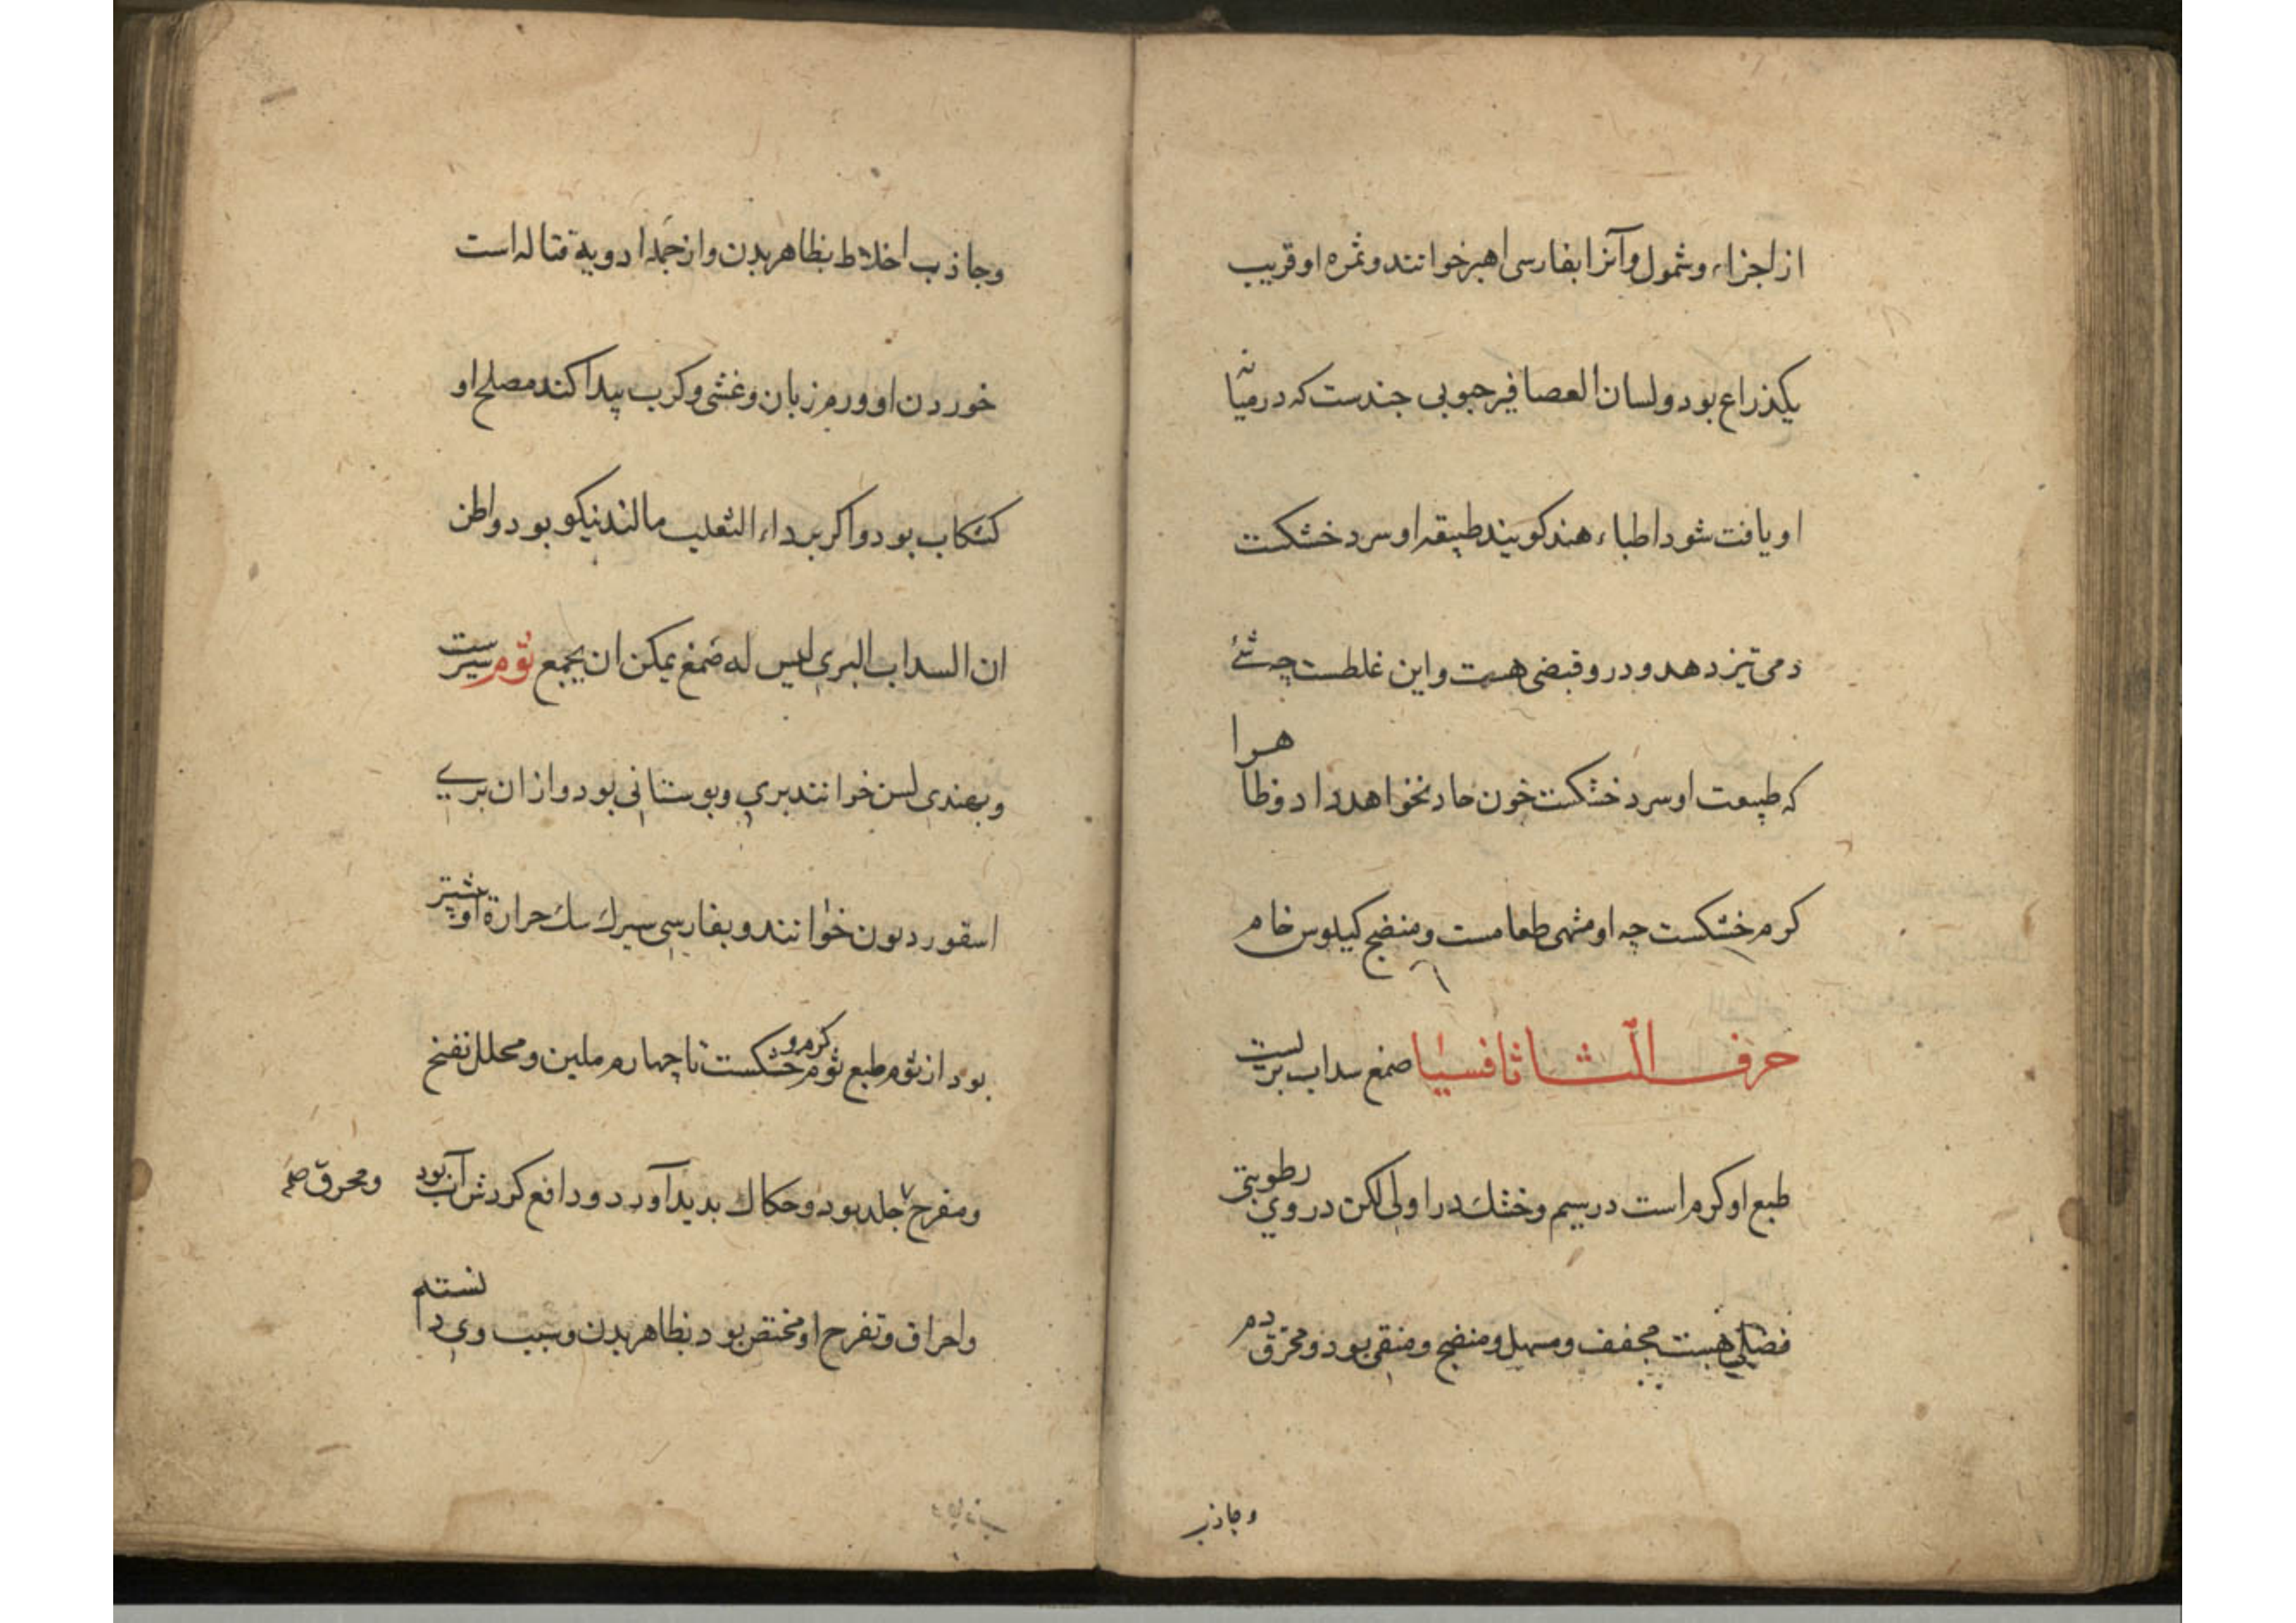 از اجزاء وشمول وآنرا بفارسی اهر خوانند وثمره او قریب
یکذراع بود ولسان العصافیر حبوبی چندست که درمیانه
او یافت شود اطباء هند کویند طبیعة او سرد خشکست
دمی تیز دهد ودرو قبضی هست واین غلطست چه شئ
که طبیعت او سرد خشکست خون حاد نخواهد داد وظاهرا
کرم خشکست چه او مشهی طعامست ومنضج کیلوس خام
حرف الثا ثافسیا صمغ سداب بریست
طبع او کرم است درسیم وخشك در اولی لکن در وی رطوبتی
فضلی هست مجفف ومسهل ومنضج ومنقی بود ومحرق دم
وجاذب
وجاذب اخلاط بظاهر بدن واز جمله ادویة قتاله است
خوردن او ورم زبان وغشی وکرب پیدا کند مصلح او
کشکاب بود واکر بر داء الثعلب مالند نیکو بود واظن
ان السداب البری لیس له صمغ یمکن ان یجمع ثوم سیرست
وبهندی لسن خوانند بری وبوستانی بود واز ان بری
اسقوردیون خوانند وبفارسی سیرك سك حرارة او بیشتر
بود از ثوم طبع ثوم کرم وخشکست تا چهارم ملین ومحلل نفخ
ومقرح جلد بود وحکاك بدید آورد ودافع کردش آب بود
ومحرق
واحراق وتقرح او مختص بود بظاهر بدن وسبب وی دانستم